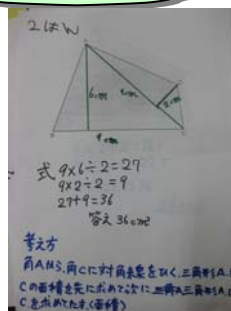 6cm
9cm
2cm
9cm
式 9×6÷2=27
9×2÷2=9
27+9=36
答え 36cm²
考え方
角Aから、角Cに対角線をひく。三角形
の面積を先に求めて次に
求めてたす。(面積)